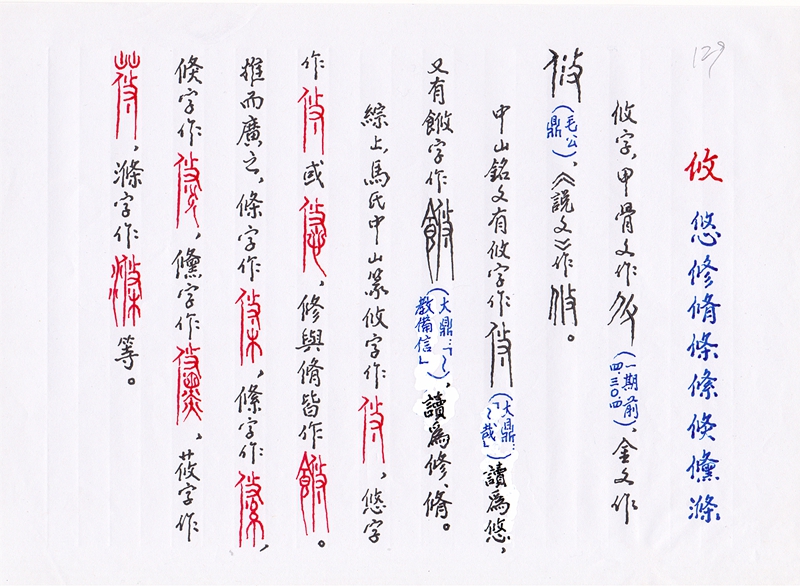 129
攸 悠修脩條絛倏儵滌
攸字，甲骨文作（一期前四.三〇.四.），金文作
（毛公鼎），《説文》作。
中山銘文有攸字作（大鼎：「～哉」）讀為悠，
又有字作（大鼎：「～教備信」），讀為修、脩。
綜上，馬氏中山篆攸字作，悠字
作或，修與脩皆作。
推而廣之，條字作，絛字作，
倏字作，儵字作，莜字作
，滌字作等。